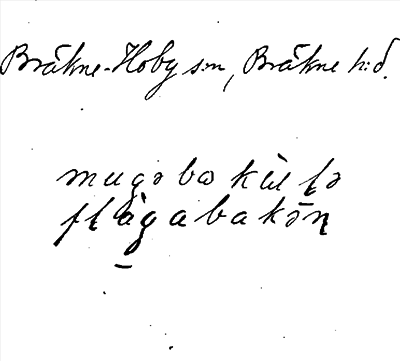 Bräkne-Hoby s:n, Bräkne h:d.
mugəbω kùl fə
flàgabakən